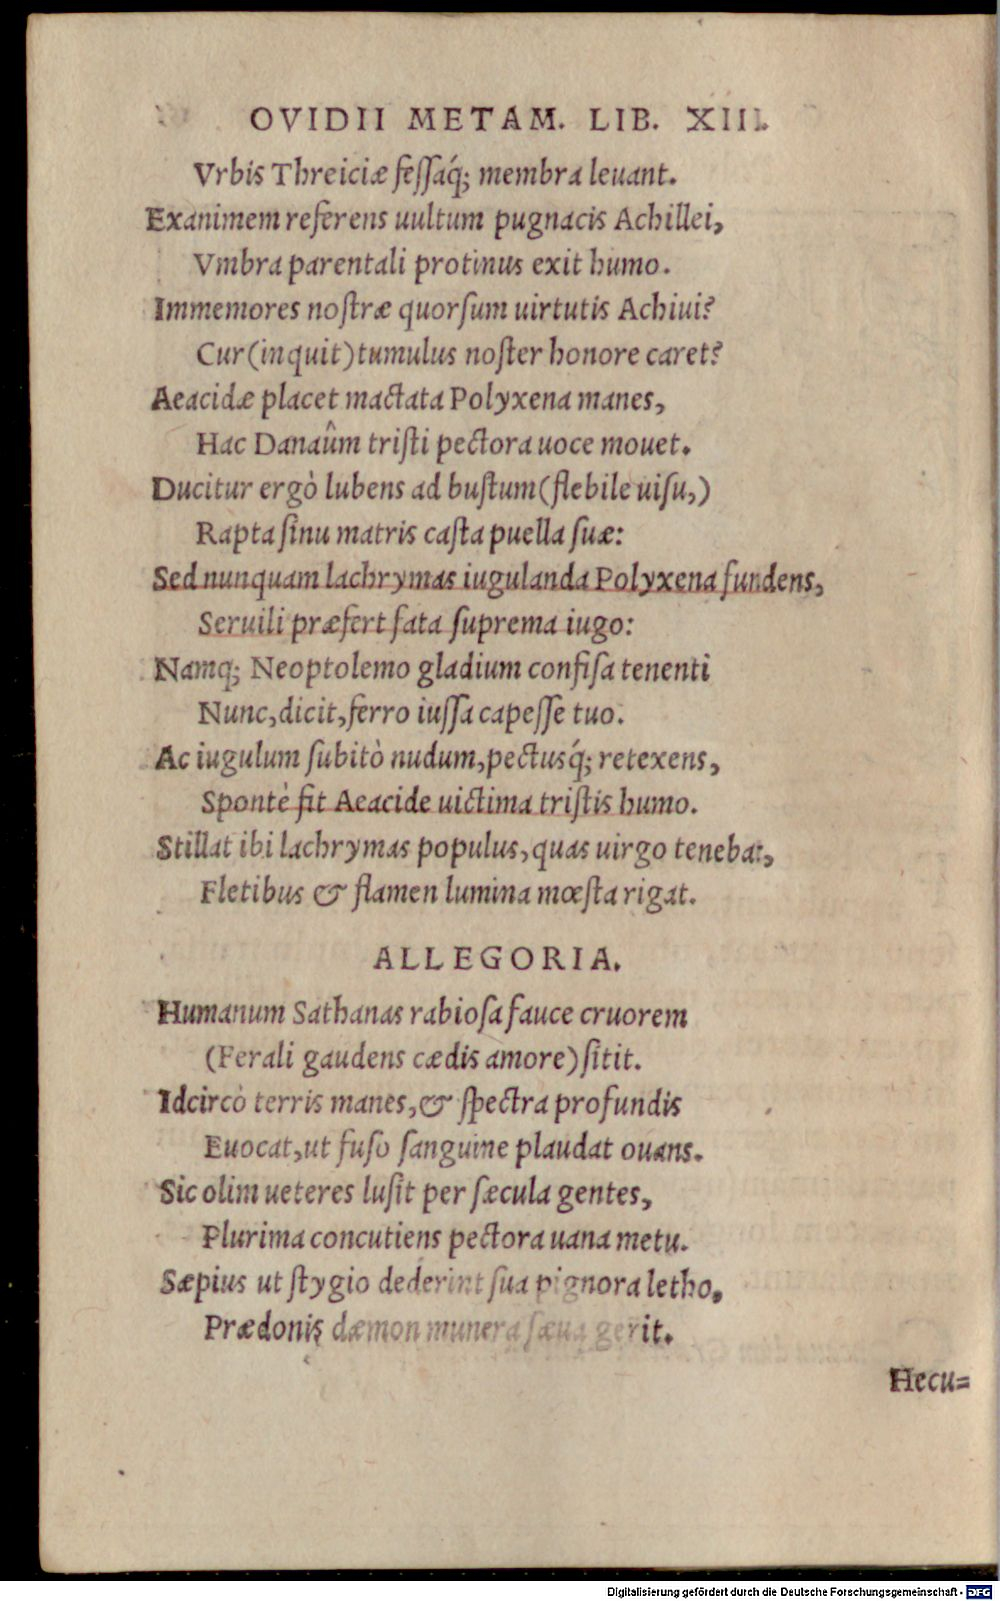 OVIDII METAM. LIB. XIII.
Vrbis Threiciæ feſſaq́; membra leuant.
Exanimem referens uultum pugnacis Achillei,
Vmbra parentali protinus exit humo.
Immemores noſtræ quorſum uirtutis Achiui?
Cur (inquit) tumulus noſter honore caret?
Aeacidæ placet mactata Polyxena manes,
Hac Danaûm triſti pectora uoce mouet.
Ducitur ergò lubens ad buſtum (flebile uiſu,)
Rapta ſinu matris caſta puella ſuæ:
Sed nunquam lachrymas iugulanda Polyxena fundens,
Seruili præfert fata ſuprema iugo:
Namq; Neoptolemo gladium confiſa tenenti
Nunc, dicit, ferro iuſſa capeſſe tuo.
Ac iugulum ſubitò nudum, pectusq́; retexens,
Spontè fit Aeacide uictima triſtis humo.
Stillat ibi lachrymas populus, quas uirgo tenebat,
Fletibus & flamen lumina mœſta rigat.
ALLEGORIA.
Humanum Sathanas rabioſa fauce cruorem
(Ferali gaudens cædis amore) ſitit.
Idcircò terris manes, & ſpectra profundis
Euocat, ut fuſo ſanguine plaudat ouans.
Sic olim ueteres luſit per ſæcula gentes,
Plurima concutiens pectora uana metu.
Sæpius ut ſtygio dederint ſua pignora letho,
Prædonis dæmon munera ſæua gerit.
Hecu=
Digitalisierung gefördert durch die Deutsche Forschungsgemeinschaft - DFG